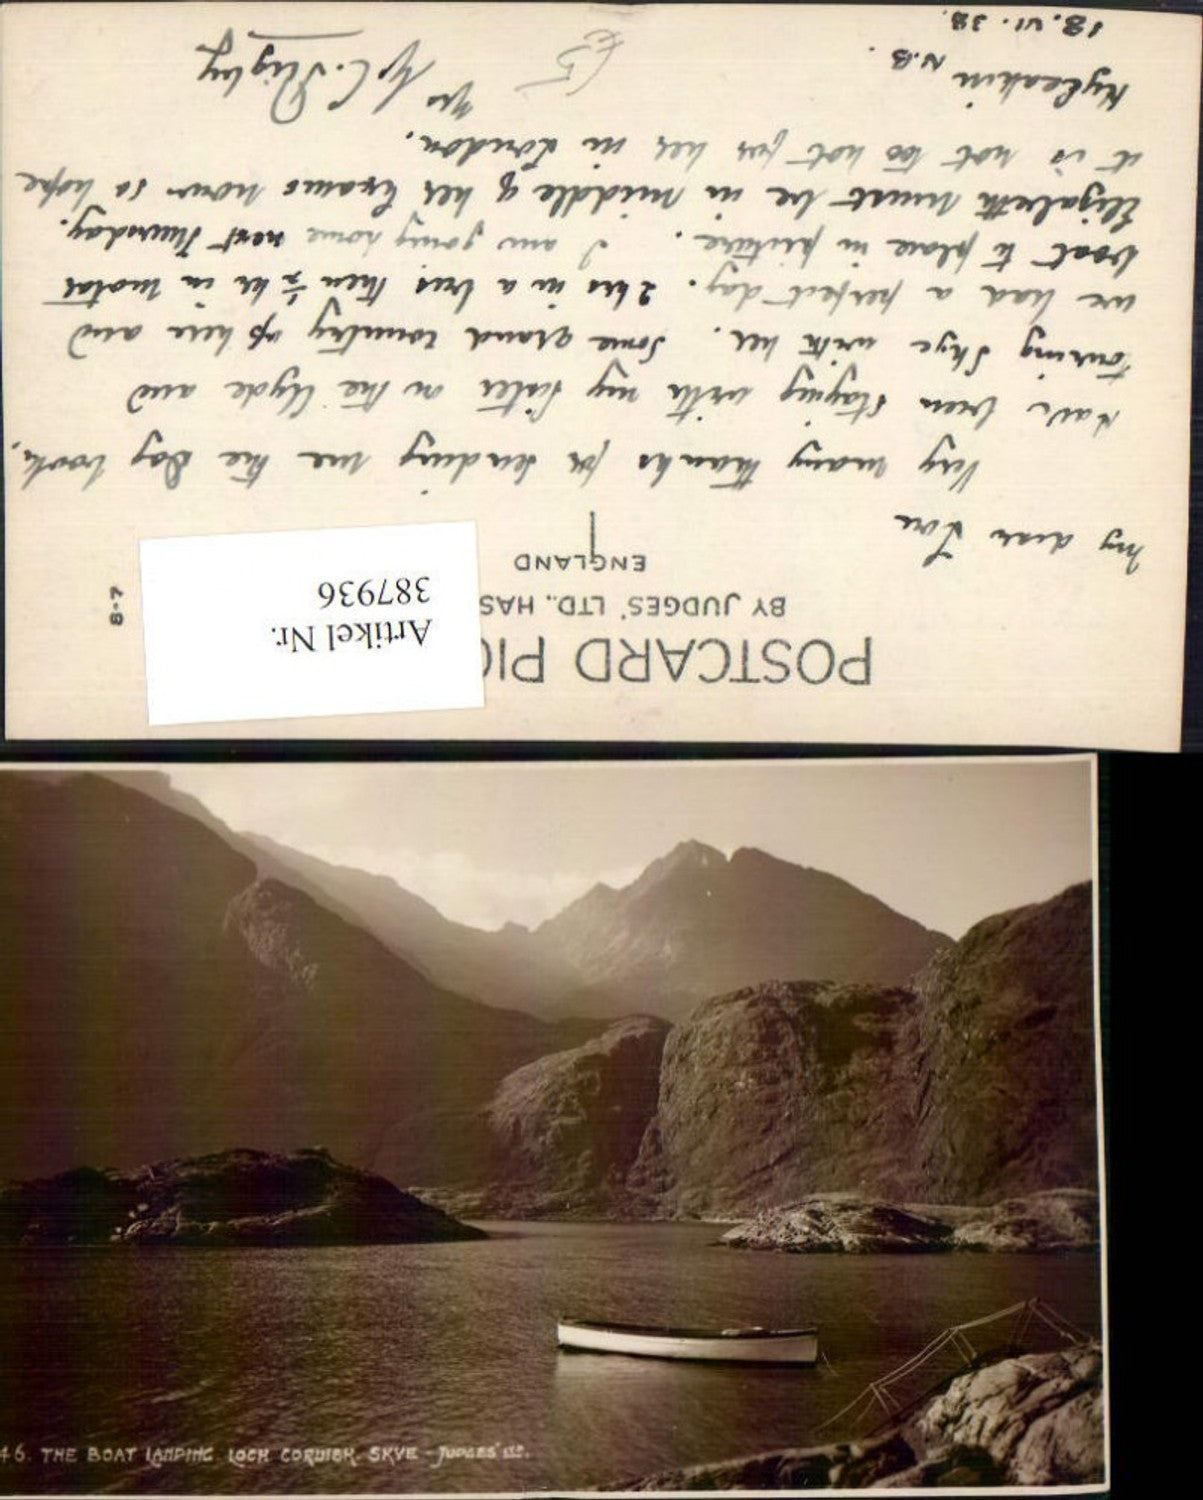 POSTCARD PIC
BY JUDGES' LTD., HAS
ENGLAND
Artikel Nr.
387936
8-7
My dear Lou
Very many thanks for sending me the Dog book,
have been staying with my sister on the Clyde and
touring Skye with her. Some grand country up here and
we had a perfect day. 2 hrs in a bus then ½ hr in motor
boat to place in picture. I am going home next Thursday.
Elizabeth must be in middle of her Exams now so hope
it is not too hot for her in London.
Kyleakin N.B.
18.VI.38.
£5
46. THE BOAT LANDING LOCH CORUISK. SKYE - JUDGES' LTD.